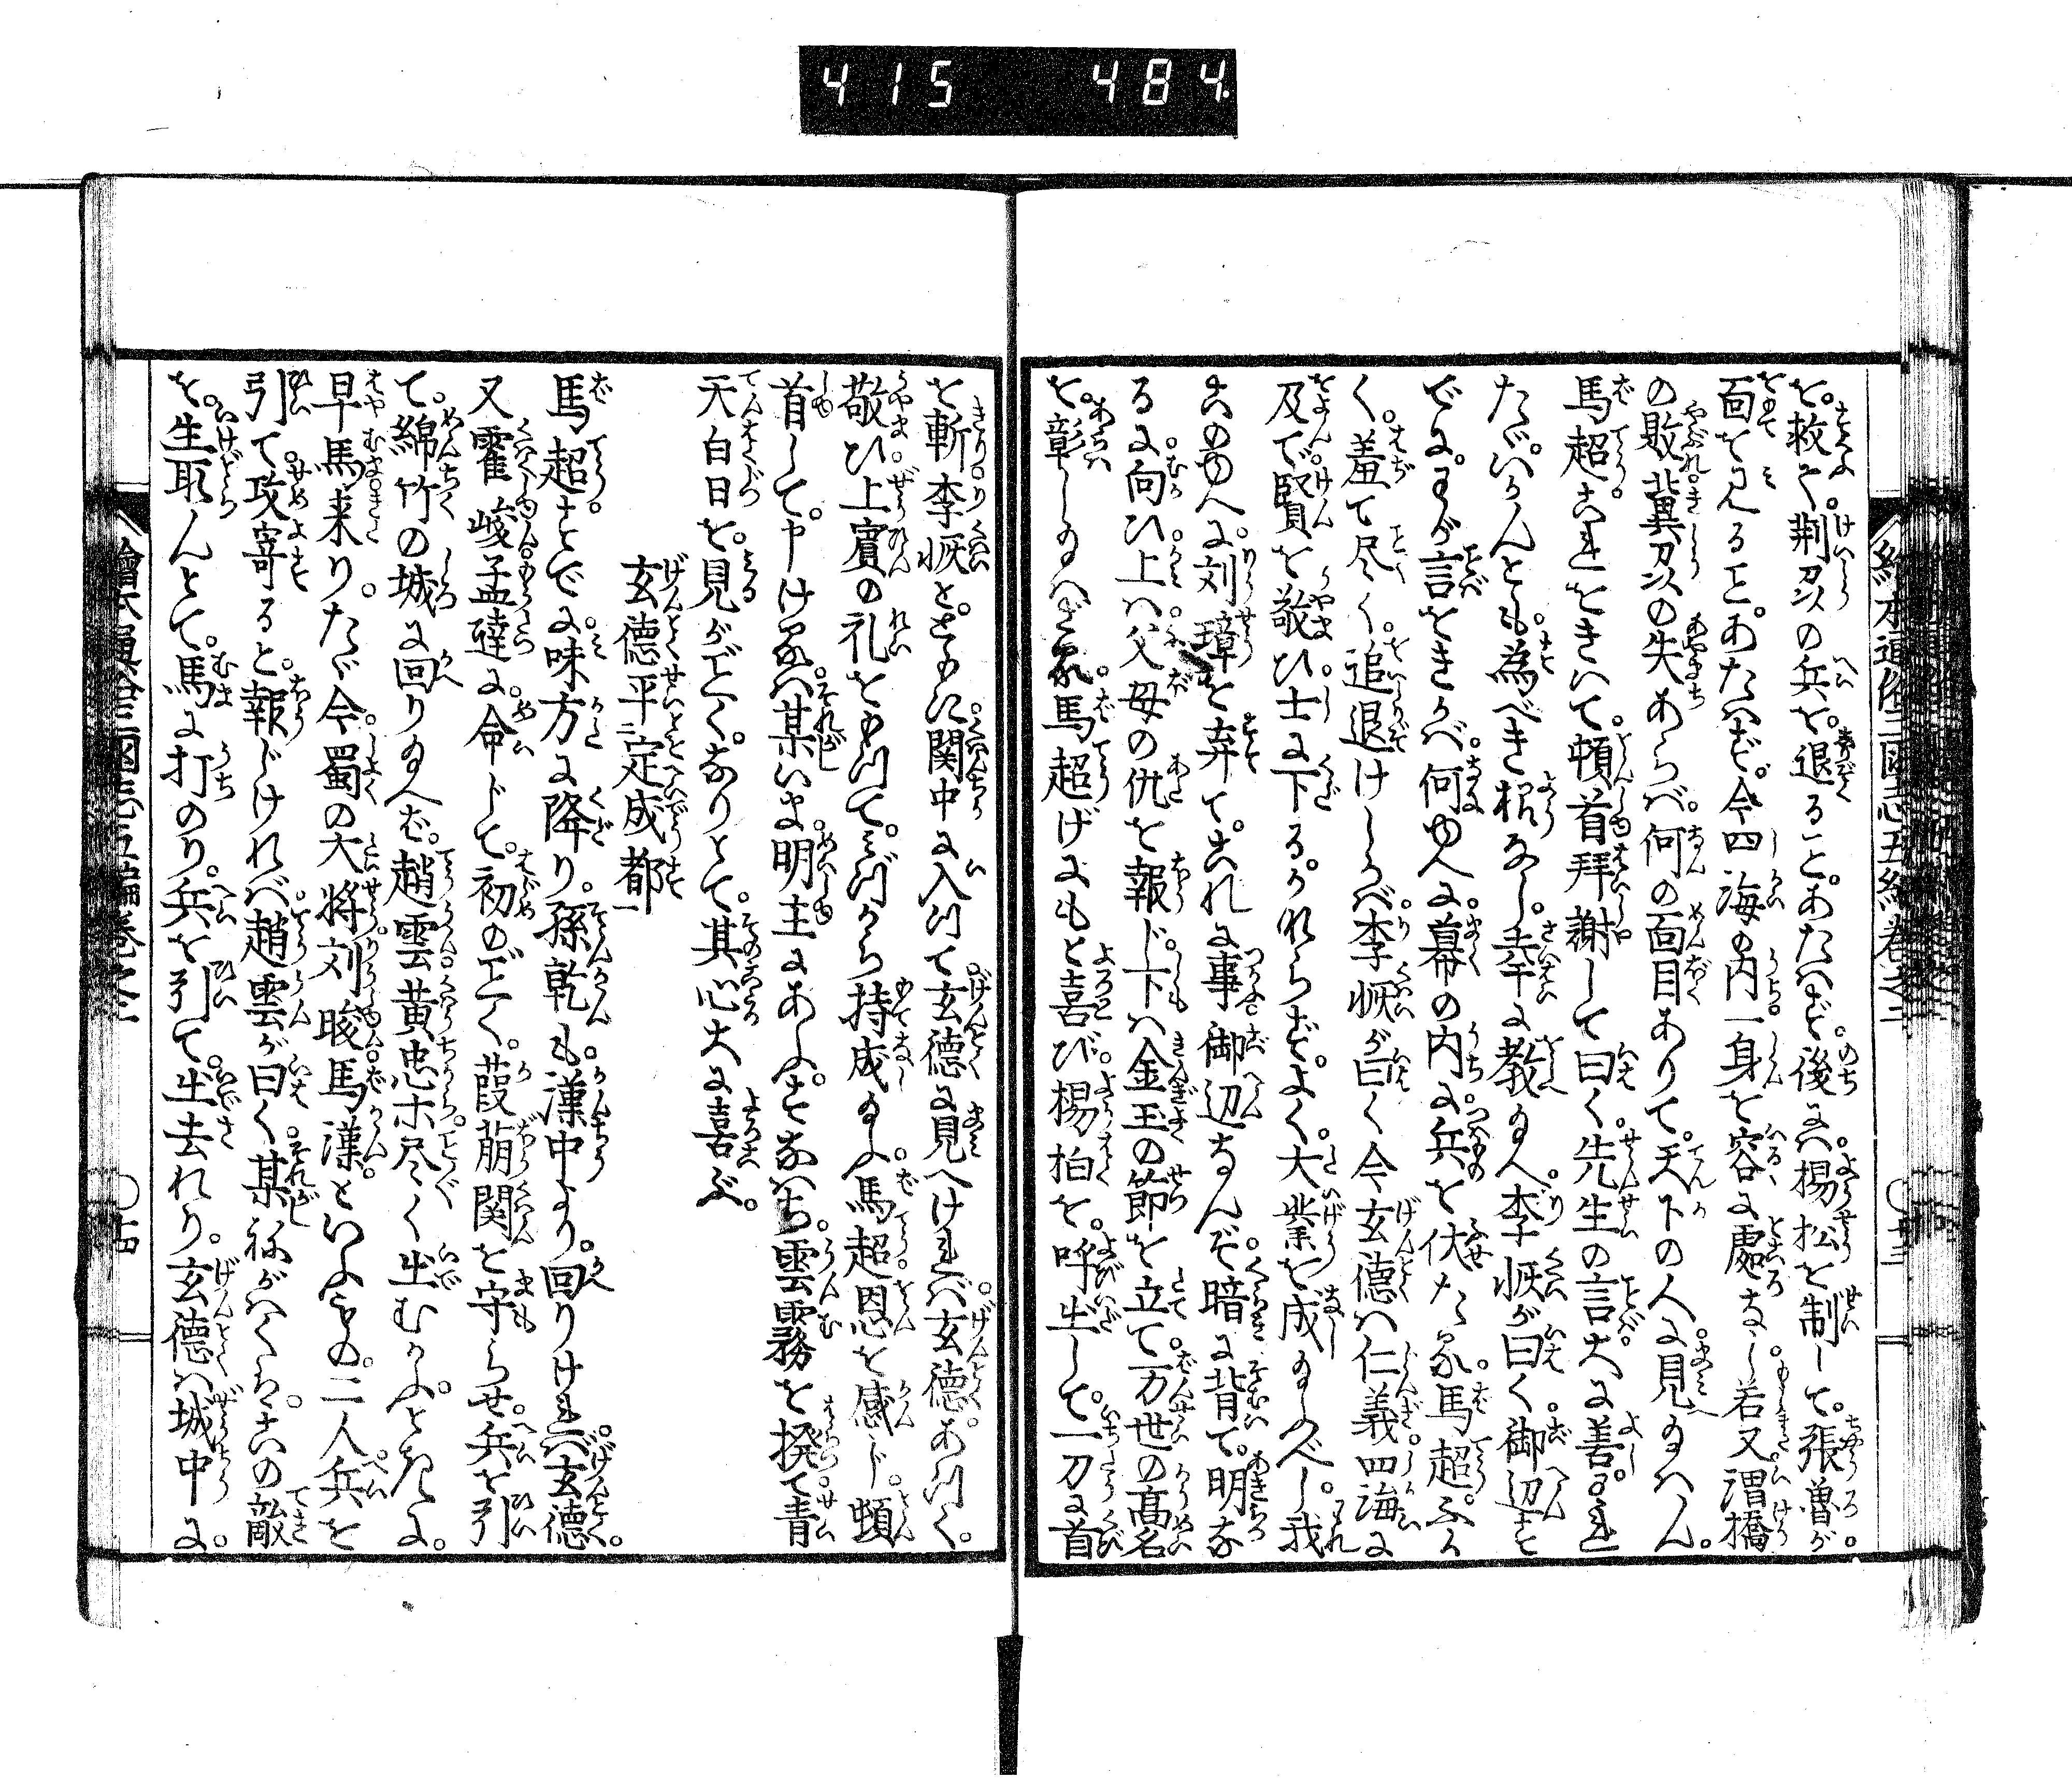 415 484.
を救て。荆州の兵を。退ること。あたはず。後には。楊松を制して。張魯が。
面を見ること。あたはず。今四海の内。一身を容に處なし。若又渭橋
の敗。冀州の失あらば。何の面目ありて。天下の人に見へ給はん。
馬超これをきいて。頓首拜謝して曰く。先生の言大に善。われ
たゞ。いかんとも。為べき樣なし。幸に教給へ。李恢が曰く。御辺す
でに。わが言をきかば。何ゆへに。幕の内に。兵を伏たる。馬超。ふか
く。羞て尽く。追退けしかば。李恢が曰く今玄德は仁義四海に
及で。賢を敬ひ士に下る。かれらず。よく。大業を成給ふべし。我
このゆへに。刘璋を弃て。これに事御辺なんぞ。暗に背て。明な
るに向ひ。上は。父母の仇を報じ。下は金玉の節を立て。万世の高名
を。彰し給はざる。馬超げにもと喜び。楊柏を。呼出して。一刀に首
を斬。李恢と。ともに。関中に入て。玄德に見へければ。玄德。あつく。
敬ひ。上賓の礼をもつて。みづから持成給ふ。馬超。恩を感じ。頓
首して。申けるは。某。いま。明主にあふ。すなはち。雲霧を撥て。青
天白日を。見がごとく。なりとて。其心大に喜ぶ。
玄德平定成都
馬超。すでに。味方に降り。孫乾も。漢中より。回りければ。玄德。
又霍峻。孟達に。命じて。初のごとく。葭萠関を守らせ。兵を引
て。綿竹の城に回り給へば。趙雲。黄忠ホ。尽く出むかふときに。
早馬来り。たゞ今。蜀の大将刘晙。馬漢といふもの。二人兵を
引て攻寄ると。報じければ。趙雲が曰く。某ねがはくは。この敵
を。生取んとて。馬に打のり。兵を引て。出去れり。玄德は城中に。